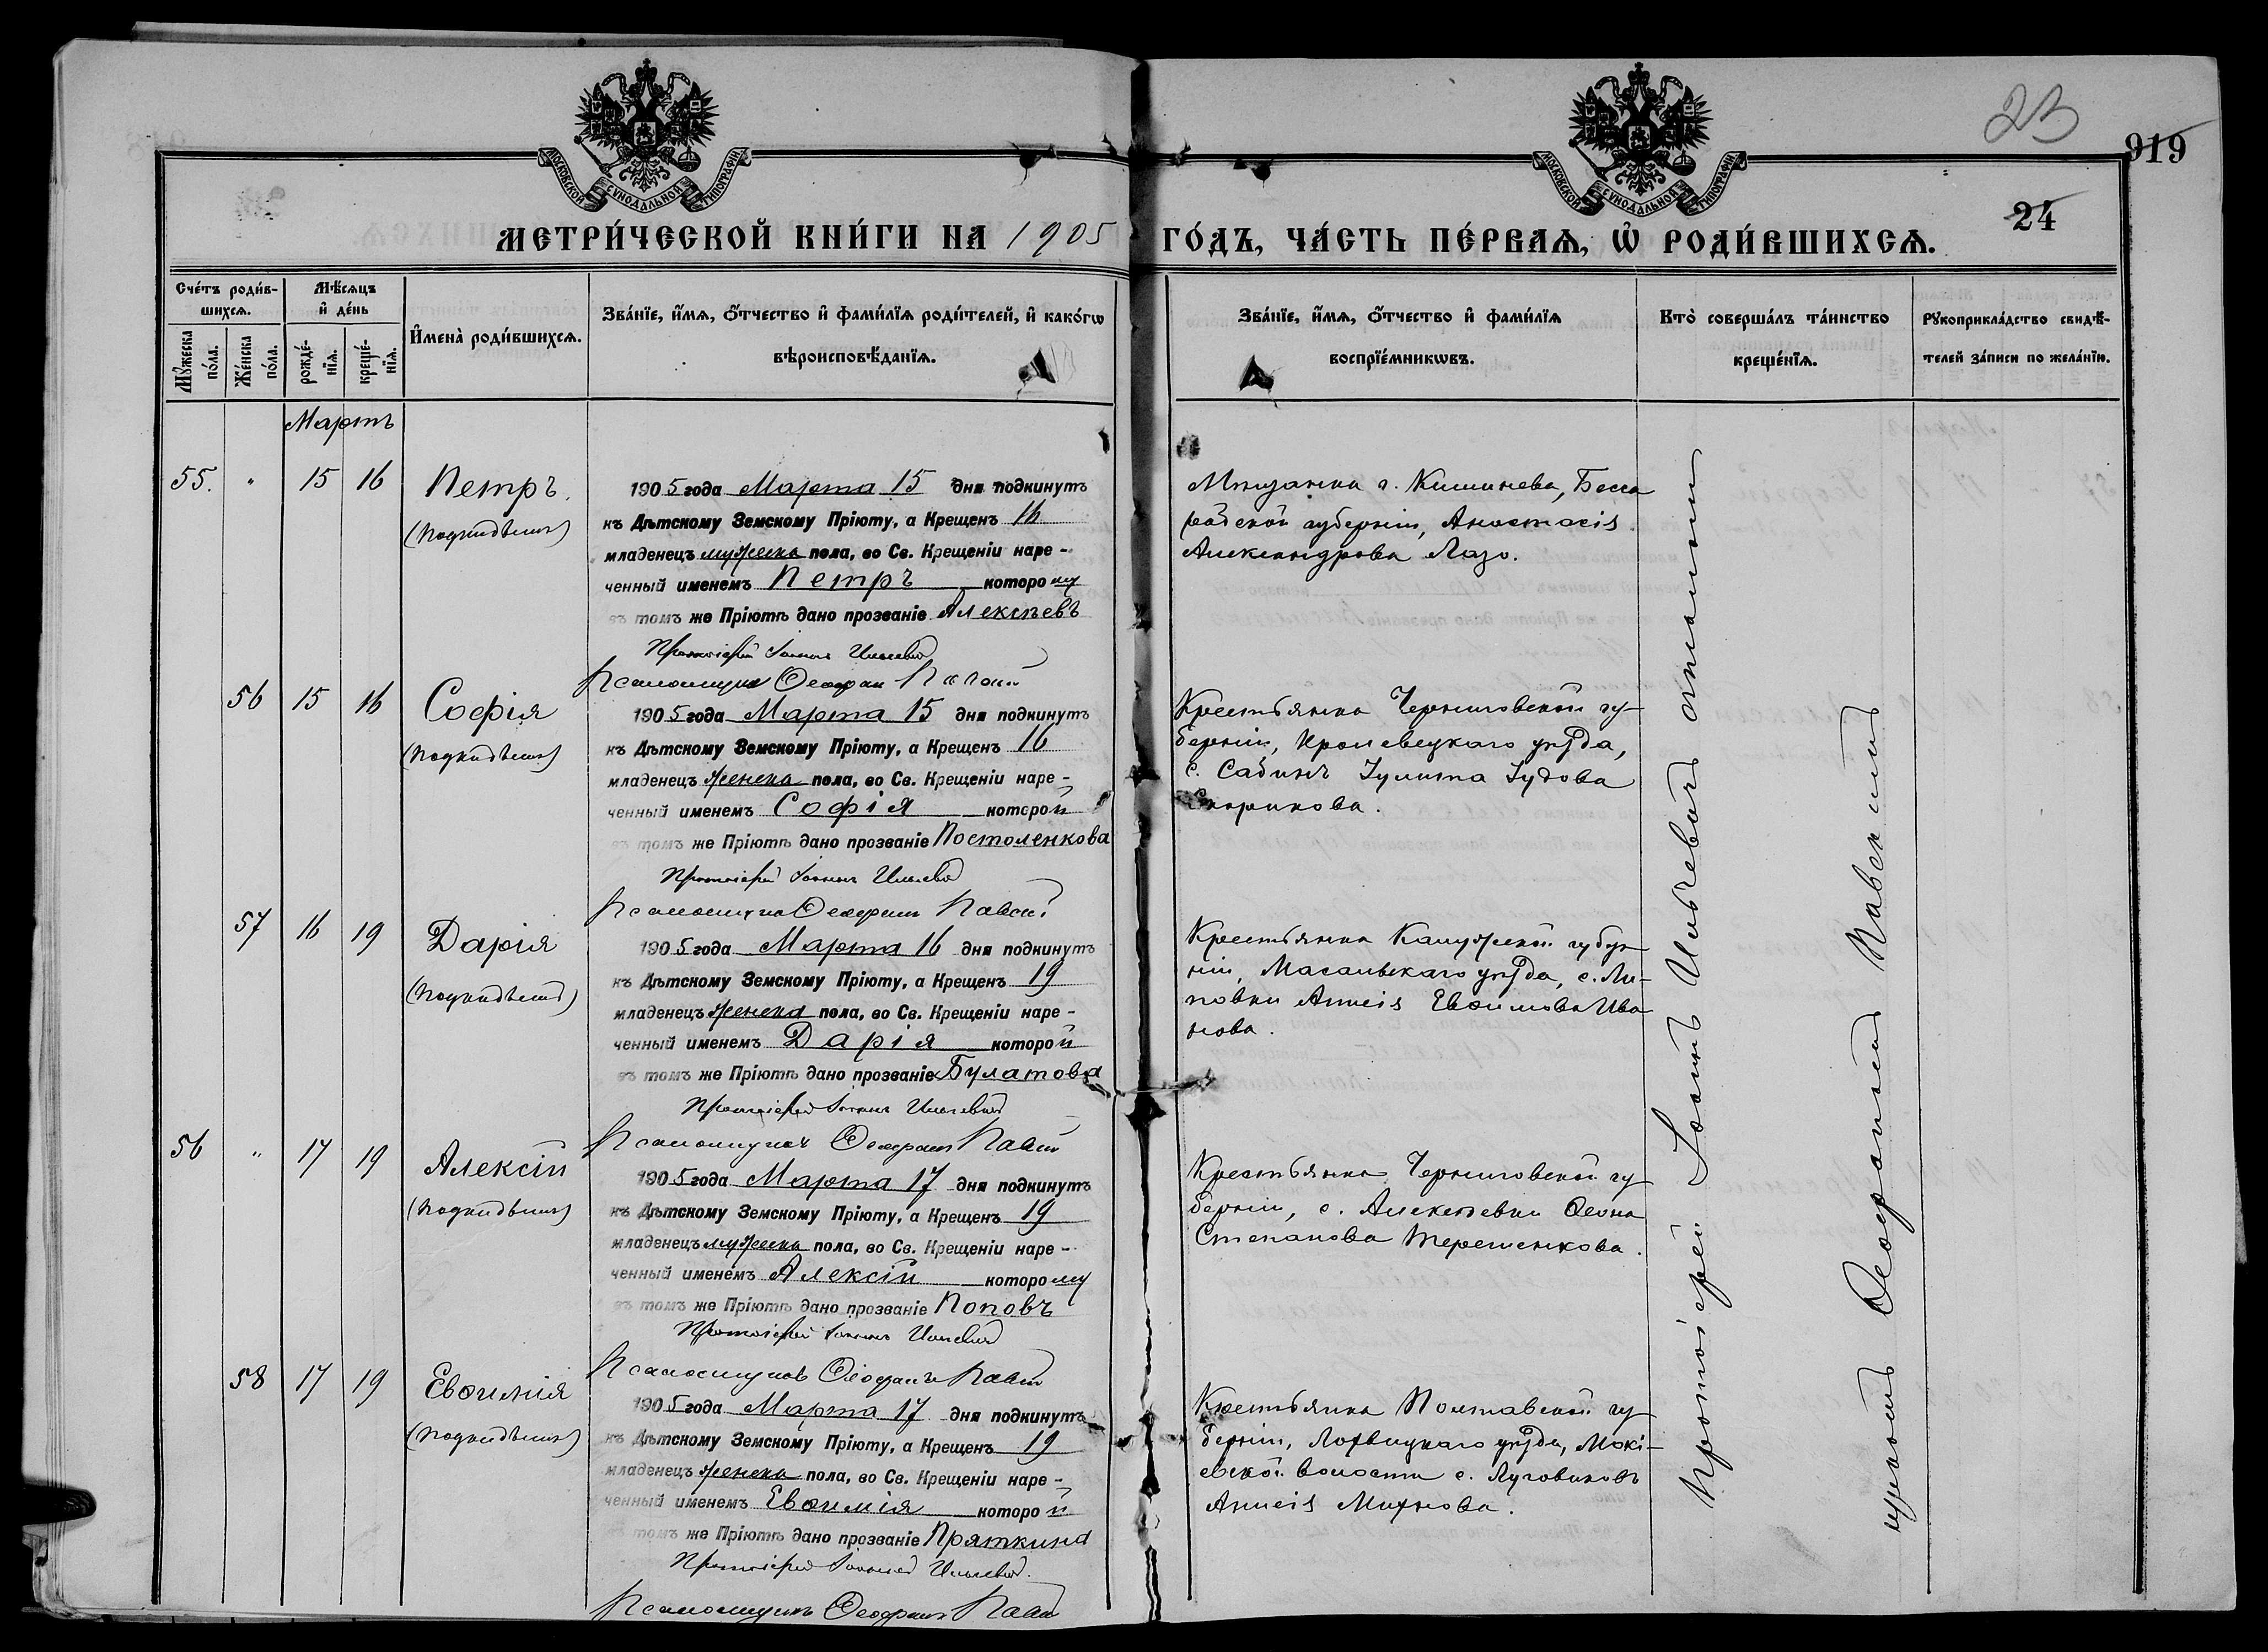 23
919
24
МОСКОВСКОЙ СѴНОДАЛЬНОЙ ТИПОГРАФІИ
МОСКОВСКОЙ СѴНОДАЛЬНОЙ ТИПОГРАФІИ
МЕТРИ́ЧЕСКОЙ КНИ́ГИ НА 1905 ГО́ДЪ, ЧА́СТЬ ПЕ́РВАѦ, Ѡ҆ РОДИ́ВШИХСѦ.
Сче́тъ роди́в-
шихсѧ.
Мꙋ́жеска по́ла.
Же́нска по́ла.
Мѣ́сѧцъ
и҆ де́нь
рожде́-
нїѧ.
креще́-
нїѧ.
И҆мена̀ роди́вшихсѧ.
Зва́нїе, и҆́мѧ, ѻ҆́тчество и҆ фами́лїѧ роди́телей, и҆ како́гѡ
вѣроисповѣ́данїѧ.
Зва́нїе, и҆́мѧ, ѻ҆́тчество и҆ фами́лїѧ
воспрїе́мникѡвъ.
Кто̀ соверша́лъ та́инство
креще́нїѧ.
Рꙋкоприкла́дство свидѣ́-
телей за́писи по жела́нїю.
Мартъ
55. " 15 16 Петръ.
(подкидышъ)
1905 года Марта 15 дня подкинутъ
къ Дѣтскому Земскому Пріюту, а Крещенъ 16
младенецъ мужеска пола, во Св. Крещеніи наре-
ченный именемъ Петръ которому
въ томъ же Пріютѣ дано прозваніе Алексѣевъ
Протоіерей Іоаннъ Ильчевичъ
Псаломщикъ Ѳеофанъ
Мѣщанка г. Кишинева, Бесса
рабской губерніи, Анастасія
Александрова Лазо.
56 15 16 Софія
(подкидышъ)
1905 года Марта 15 дня подкинутъ
къ Дѣтскому Земскому Пріюту, а Крещенъ 16
младенецъ женска пола, во Св. Крещеніи наре-
ченный именемъ Софія которой
въ томъ же Пріютѣ дано прозваніе Постоленкова
Протоіерей Іоаннъ Ильчевичъ
Псаломщикъ Ѳеофанъ
Крестьянка Черниговской гу-
берніи, Кролевецкаго уѣзда,
с. Іулита Іудова
57 16 19 Дарія
(подкидышъ)
1905 года Марта 16 дня подкинутъ
къ Дѣтскому Земскому Пріюту, а Крещенъ 19
младенецъ женска пола, во Св. Крещеніи наре-
ченный именемъ Дарія которой
въ томъ же Пріютѣ дано прозваніе Булатова
Протоіерей Іоаннъ Ильчевичъ
Псаломщикъ Ѳеофанъ
Крестьянка Калужской губер-
ніи, Масальскаго уѣзда, с. Ли-
повки Анисія Евѳимова Ива
нова.
56 " 17 19 Алексій
(подкидышъ)
1905 года Марта 17 дня подкинутъ
къ Дѣтскому Земскому Пріюту, а Крещенъ 19
младенецъ мужеска пола, во Св. Крещеніи наре-
ченный именемъ Алексій которому
въ томъ же Пріютѣ дано прозваніе Поповъ
Протоіерей Іоаннъ Ильчевичъ
Псаломщикъ Ѳеофанъ
Крестьянка Черниговской гу
берніи, с. Алексѣевки Ѳеона
Степанова Терешенкова.
58 17 19 Евѳимія
(подкидышъ)
1905 года Марта 17 дня подкинутъ
къ Дѣтскому Земскому Пріюту, а Крещенъ 19
младенецъ женска пола, во Св. Крещеніи наре-
ченный именемъ Евѳимія которой
въ томъ же Пріютѣ дано прозваніе Пряткина
Протоіерей Іоаннъ Ильчевичъ.
Псаломщикъ Ѳеофанъ
Крестьянка Полтавской гу
берніи, Лохвицкаго уѣзда, Мокі-
евской волости с. Луговиковъ
Анисія Михнова.
Протоіерей Іоаннъ Ильчевичъ
Ѳеофаномъ Павскимъ